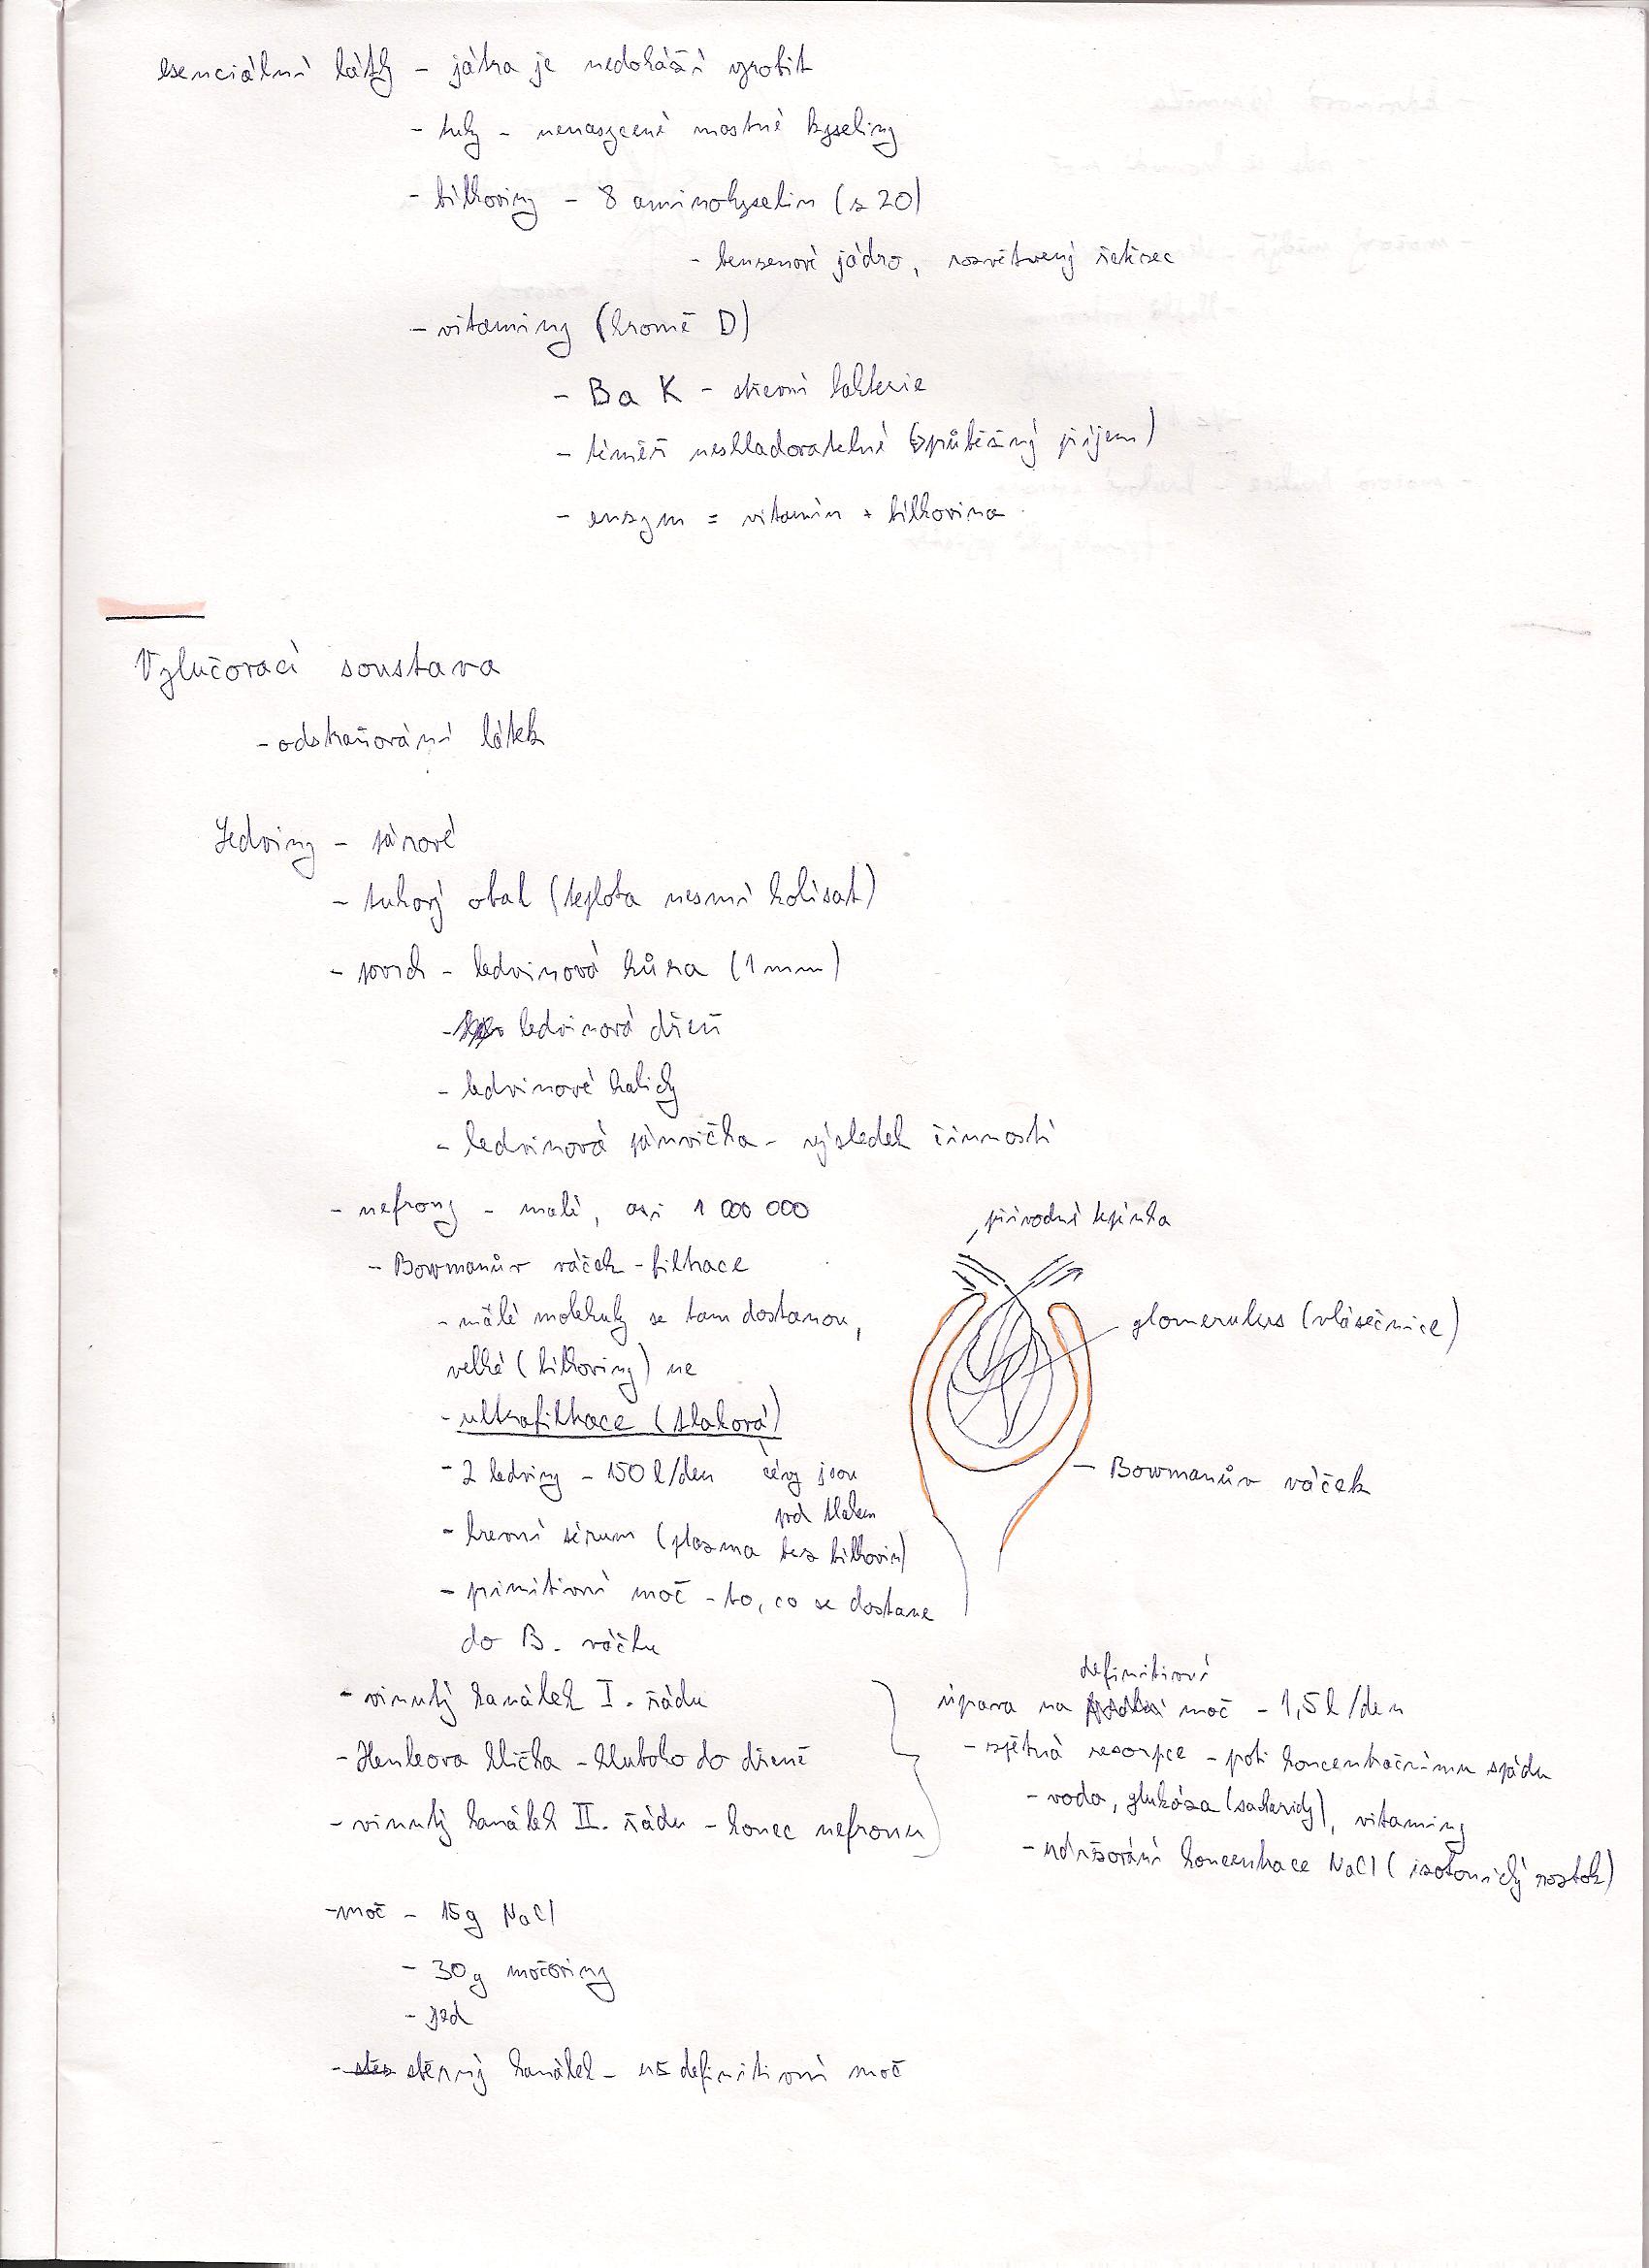 esenciální látky – játra je nedokáží vyrobit
- tuky - nenasycené mastné kyseliny
- bílkoviny - 8 aminokyselin (z 20)
- benzenové jádro, rozvětvený řetězec
- vitaminy (kromě D)
- B a K - střevní bakterie
- téměř neskladovatelné (→průběžný příjem)
- enzym = vitamín + bílkovina
Vylučovací soustava
- odstraňování látek
Ledviny - párové
- tukový obal (teplota nesmí kolísat)
- povrch - ledvinová kůra (1 mm)
- ledvinová dřeň
- ledvinové kalichy
- ledvinová pánvička - výsledek činnosti
- nefrony - malé, asi 1 000 000
- Bowmanův váček - filtrace
- málé molekuly se tam dostanou,
velké (bílkoviny) ne
- ultrafiltrace (tlaková)
- 2 ledviny - 150 l/den cévy jsou
pod tlakem
- krevní sérum (plazma bez bílkovin)
- primitivní moč - to, co se dostane
do B. váčku
přívodní tepénka
glomerulus (vlásečnice)
- Bowmanův váček
- vinutý kanálek I. řádu
- Henleova klička - hluboko do dřeně
- vinutý kanálek II. řádu - konec nefronu
definitivní
úprava na moč - 1,5 l/den
- zpětná resorpce - proti koncentračnímu spádu
- voda, glukóza (sacharidy), vitaminy
- udržování koncentrace NaCl (izotonický roztok)
- moč - 15g NaCl
- 30g močoviny
- jed
- sběrný kanálek - už definitivní moč